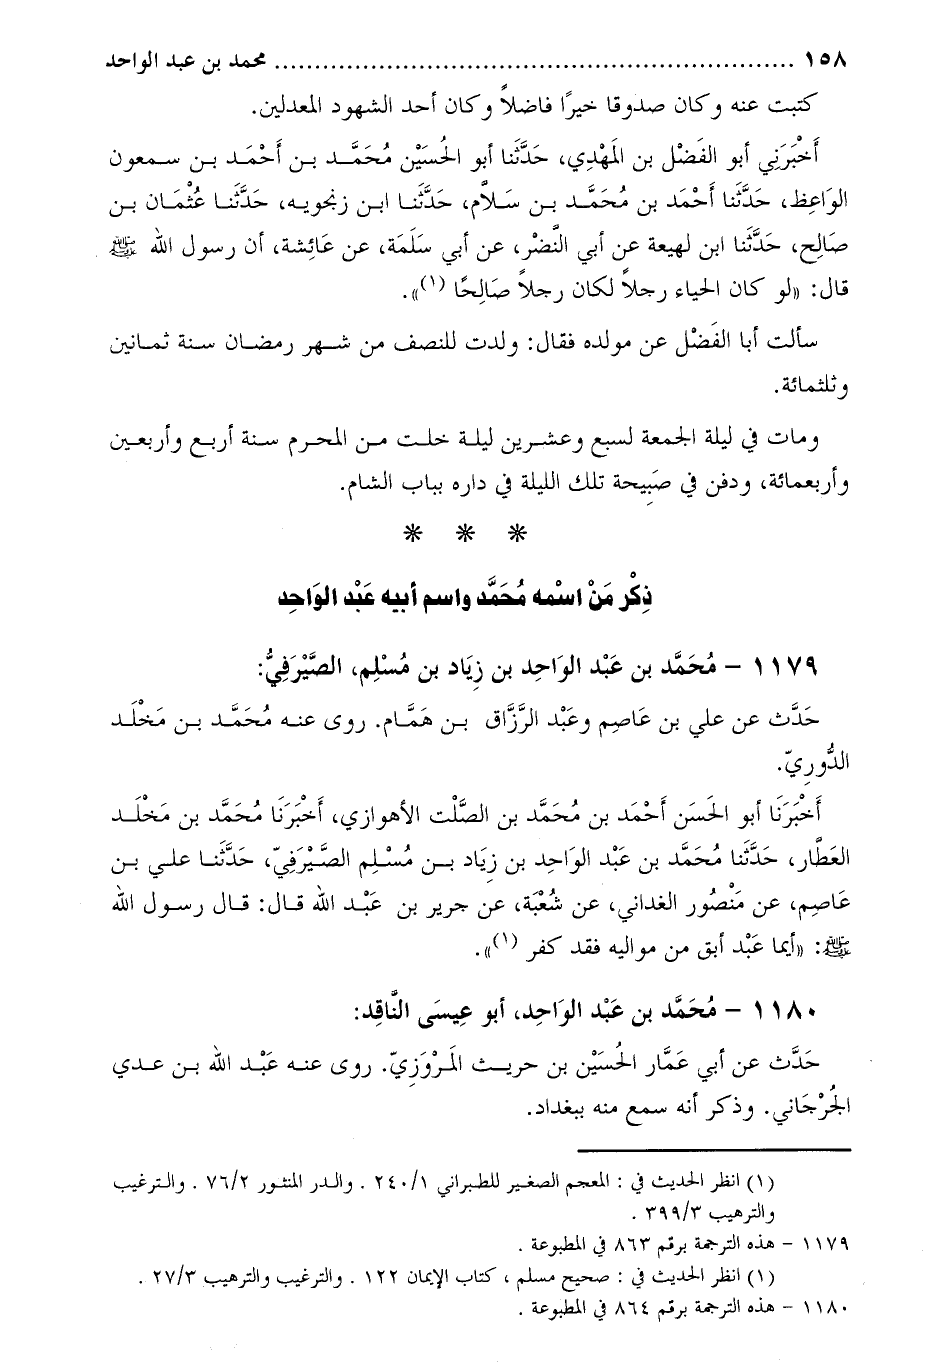 ١٥٨ ................................................................. محمد بن عبد الواحد
كتبت عنه وكان صدوقا خيرًا فاضلاً وكان أحد الشهود المعدلين.
أَخْبَرَنِي أبو الفَضْل بن المَهْدِي، حَدَّثَنا أبو الحُسَيْن مُحَمَّـد بـن أَحْمَـد بـن سـمعون
الوَاعِظ، حَدَّثَنا أَحْمَد بن مُحَمَّـد بـن سَـلاَّم، حَدَّثَنـا ابـن زنجويـه، حَدَّثَنـا عُثْمَـان بـن
صَالِح، حَدَّثَنا ابن لهيعة عن أبي النَّضْر، عن أبي سَلَمَة، عن عَائِشة، أن رسول الله ﷺ
قال: «لو كان الحياء رجلاً لكان رجلاً صَالِحًا (١)».
سألت أبا الفَضْل عن مولده فقال: ولدت للنصف من شـهر رمضـان سـنة ثمـانين
وثلثمائة.
ومات في ليلة الجمعة لسبع وعشـرين ليلـة خلـت مـن المحرم سـنة أربـع وأربعـين
وأربعمائة، ودفن في صَبِيحة تلك الليلة في داره بباب الشام.
* * *
ذِكْر مَنْ اسْمه مُحَمَّد واسم أبيه عَبْد الوَاحِد
١١٧٩ - مُحَمَّد بن عَبْد الوَاحِد بن زِيَاد بن مُسْلِم، الصَّيْرَفِيُّ:
حَدَّث عن علي بن عَاصِم وعَبْد الرَّزَّاق بـن هَمَّـام. روى عنـه مُحَمَّـد بـن مَخْلَـد
الدُّورِيّ.
أَخْبَرَنَا أبو الحَسَن أَحْمَد بن مُحَمَّد بن الصَّلْت الأهوازي، أَخْبَرَنَا مُحَمَّد بن مَخْلَـد
العَطَّار، حَدَّثَنا مُحَمَّد بن عَبْد الوَاحِد بن زِيَاد بـن مُسْـلِم الصَّيْرَفِيّ، حَدَّثَنـا علـي بـن
عَاصِم، عن مَنْصُور الغداني، عن شُعْبَة، عن جرير بن عَبْـد الله قـال: قـال رسـول الله
ﷺ: «أيما عَبْد أبق من مواليه فقد كفر (١)».
١١٨٠ - مُحَمَّد بن عَبْد الوَاحِد، أبو عِيسَى النَّاقِد:
حَدَّث عن أبي عَمَّار الحُسَيْن بن حريـث المَـرْوَزِيّ. روى عنـه عَبْـد الله بـن عـدي
الجُرْجَاني. وذكر أنه سمع منه ببغداد.
(١) انظر الحديث في : المعجم الصغير للطبراني ٢٤٠/١ . والدر المنثور ٧٦/٢ . والترغيب
والترهيب ٣٩٩/٣ .
١١٧٩ - هذه الترجمة برقم ٨٦٣ في المطبوعة .
(١) انظر الحديث في : صحيح مسلم ، كتاب الإيمان ١٢٢ . والترغيب والترهيب ٢٧/٣ .
١١٨٠ - هذه الترجمة برقم ٨٦٤ في المطبوعة .